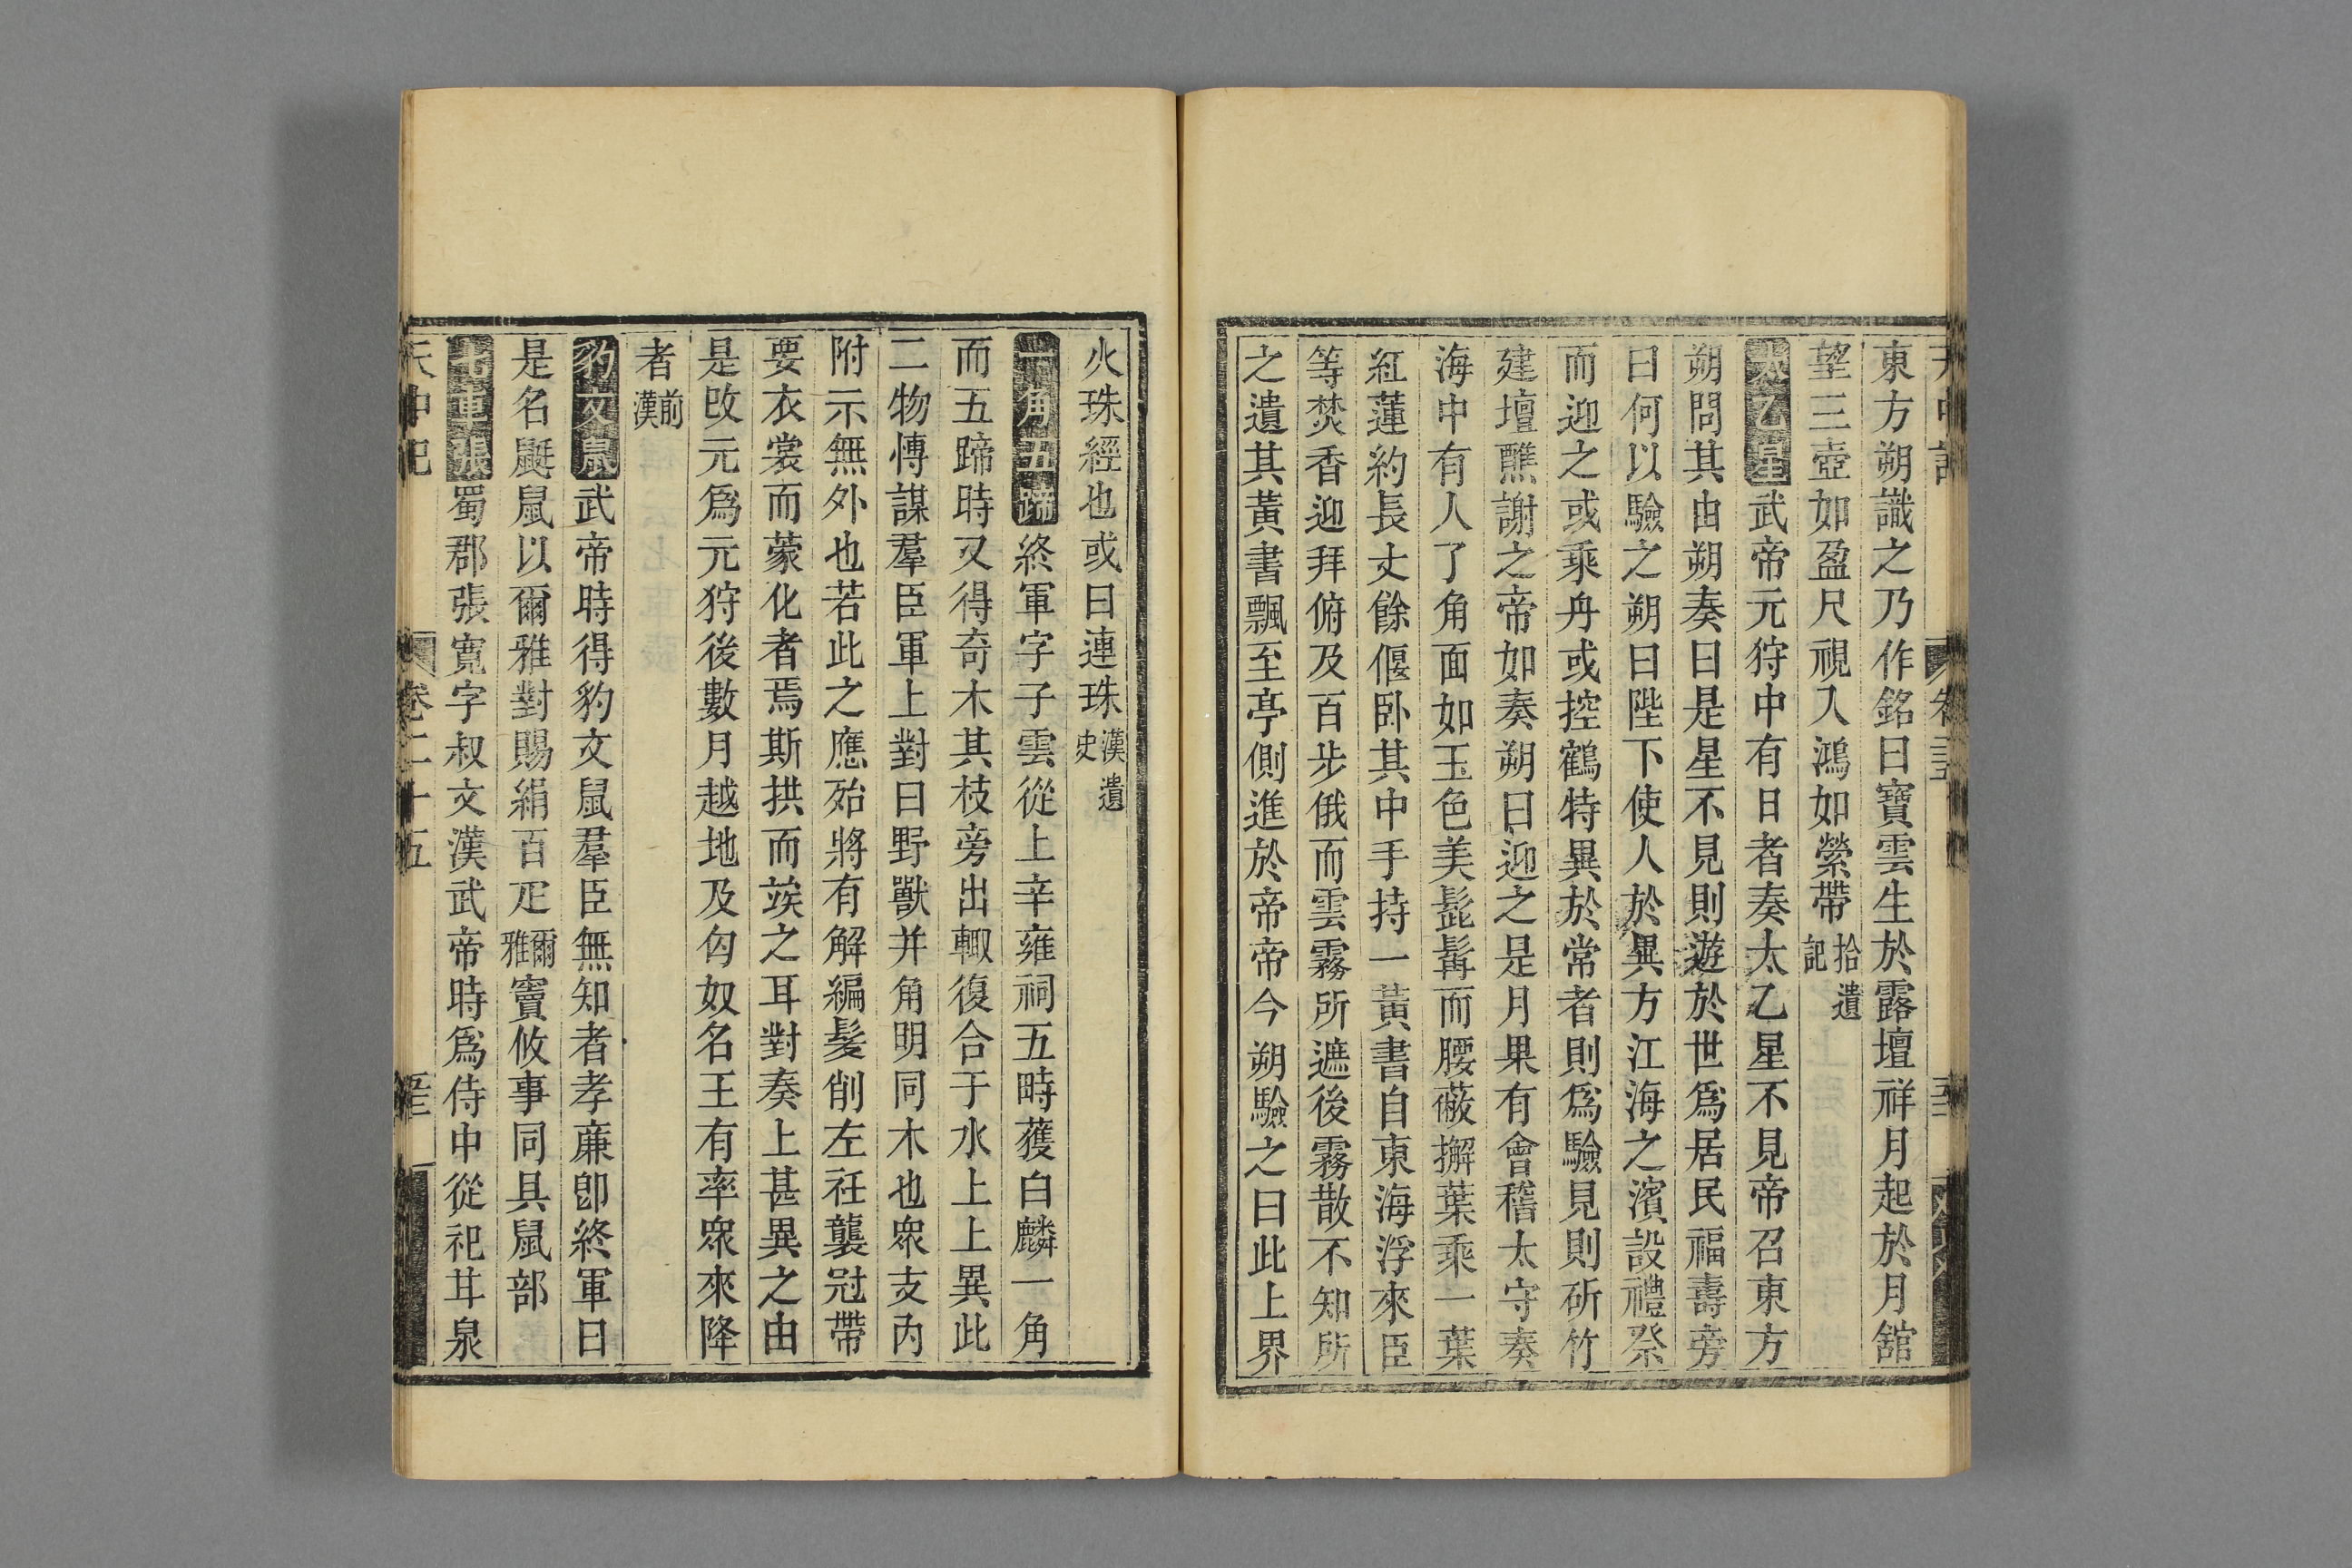 東方朔識之乃作銘曰寶雲生於露壇祥月起於月舘
望三壺如盈尺視八鴻如縈帶拾遺記
太乙星武帝元狩中有日者奏太乙星不見帝召東方
朔問其由朔奏曰是星不見則遊於世爲居民福壽旁
曰何以驗之朔曰陛下使人於異方江海之濱設禮祭
而迎之或乘舟或控鶴特異於常者則爲驗見則斫竹
建壇醮謝之帝如奏朔曰迎之是月果有會稽太守奏
海中有人了角面如玉色美髭髯而腰蔽槲葉乘一葉
紅蓮約長丈餘偃卧其中手持一黃書自東海浮來臣
等焚香迎拜俯及百步俄而雲霧所遮後霧散不知所
之遺其黃書飄至亭側進於帝帝今朔驗之曰此上界
火珠經也或曰連珠漢遺史
一角五蹄終軍字子雲從上辛雍祠五畤獲白麟一角
而五蹄時又得奇木其枝旁出輙復合于水上上異此
二物慱謀羣臣軍上對曰野獸并角明同木也衆支内
附示無外也若此之應殆將有解編髮削左衽襲冠帶
要衣裳而蒙化者焉斯拱而竢之耳對奏上甚異之由
是改元爲元狩後數月越地及匈奴名王有率衆來降
者前漢
豹文鼠武帝時得豹文鼠羣臣無知者孝廉卽終軍曰
是名鼮鼠以爾雅對賜絹百疋爾雅竇攸事同具鼠部
七車張蜀郡張寛字叔文漢武帝時爲侍中從祀甘泉
天中記 卷二十五